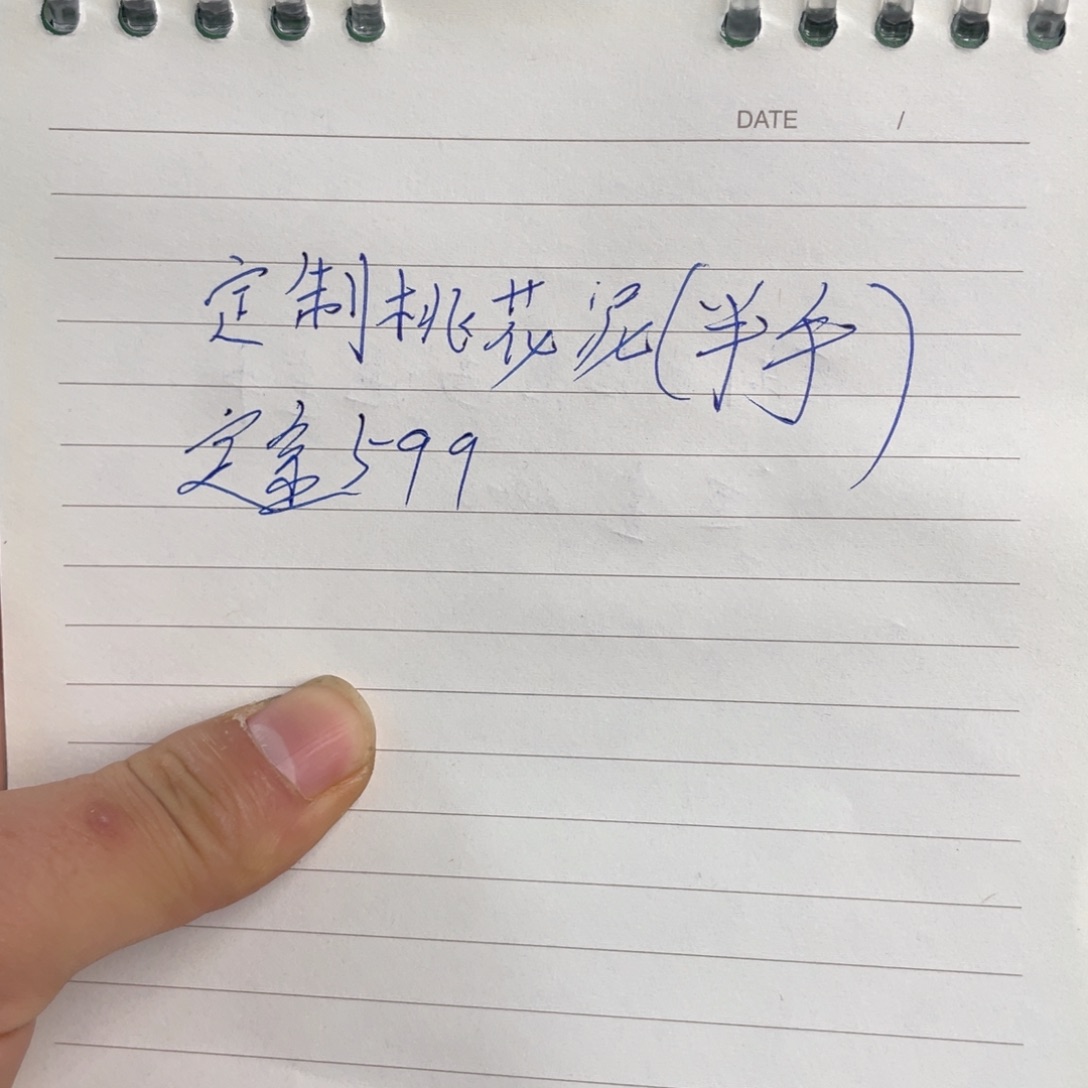 DATE /
定制桃花泥(半手)
定金599